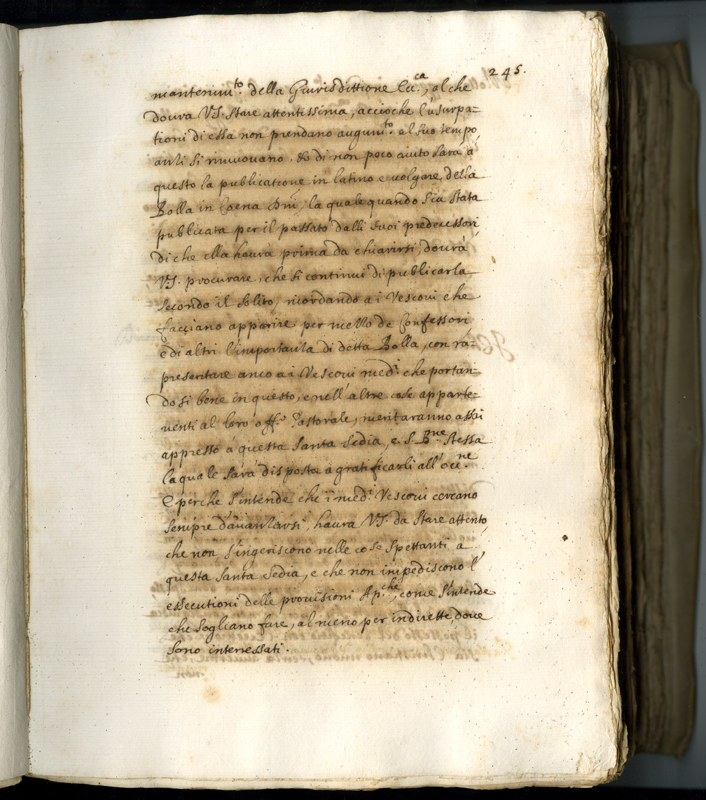 245.
mantenim.to della Giurisdittione Ecc.ca, al che
dourà V.S. stare attentissima, accioche l'usurpa-
tioni di essa non prendano augum.to e al suo tempo,
anzi si rimuouano. Et di non poco aiuto sarà à
questo la publicatione in latino e volgare della
Bolla in Coena Dni, la quale quando sia stata
publicata per il passato dalli suoi predecessori,
di che ella haurà prima da chiarirsi, dourà
V.S. procurare, che si continui di publicarla
secondo il solito, ricordando a i Vescoui che
facciano apparire per mezzo de Confessori
e di altri l'importanza di detta Bolla, con rap-
presentare anco a i Vescoui med.i che portan-
dosi bene in questo, e nell'altre cose apparte-
nenti al loro off.o Pastorale, meritaranno assai
appresso a questa Santa Sedia, e S. B.ne stessa
la quale sarà disposta a gratificarli all'occ.ne
E perche s'intende che i med.i Vescoui cercano
sempre d'auanzarsi, haurà V.S. da stare attento,
che non s'ingeriscono nelle cose spettanti a
questa Santa Sedia, e che non impediscono l'
essecutioni delle prouisioni Ap.che, come s'intende
che sogliano fare, al meno per indirette, doue
sono interessati.